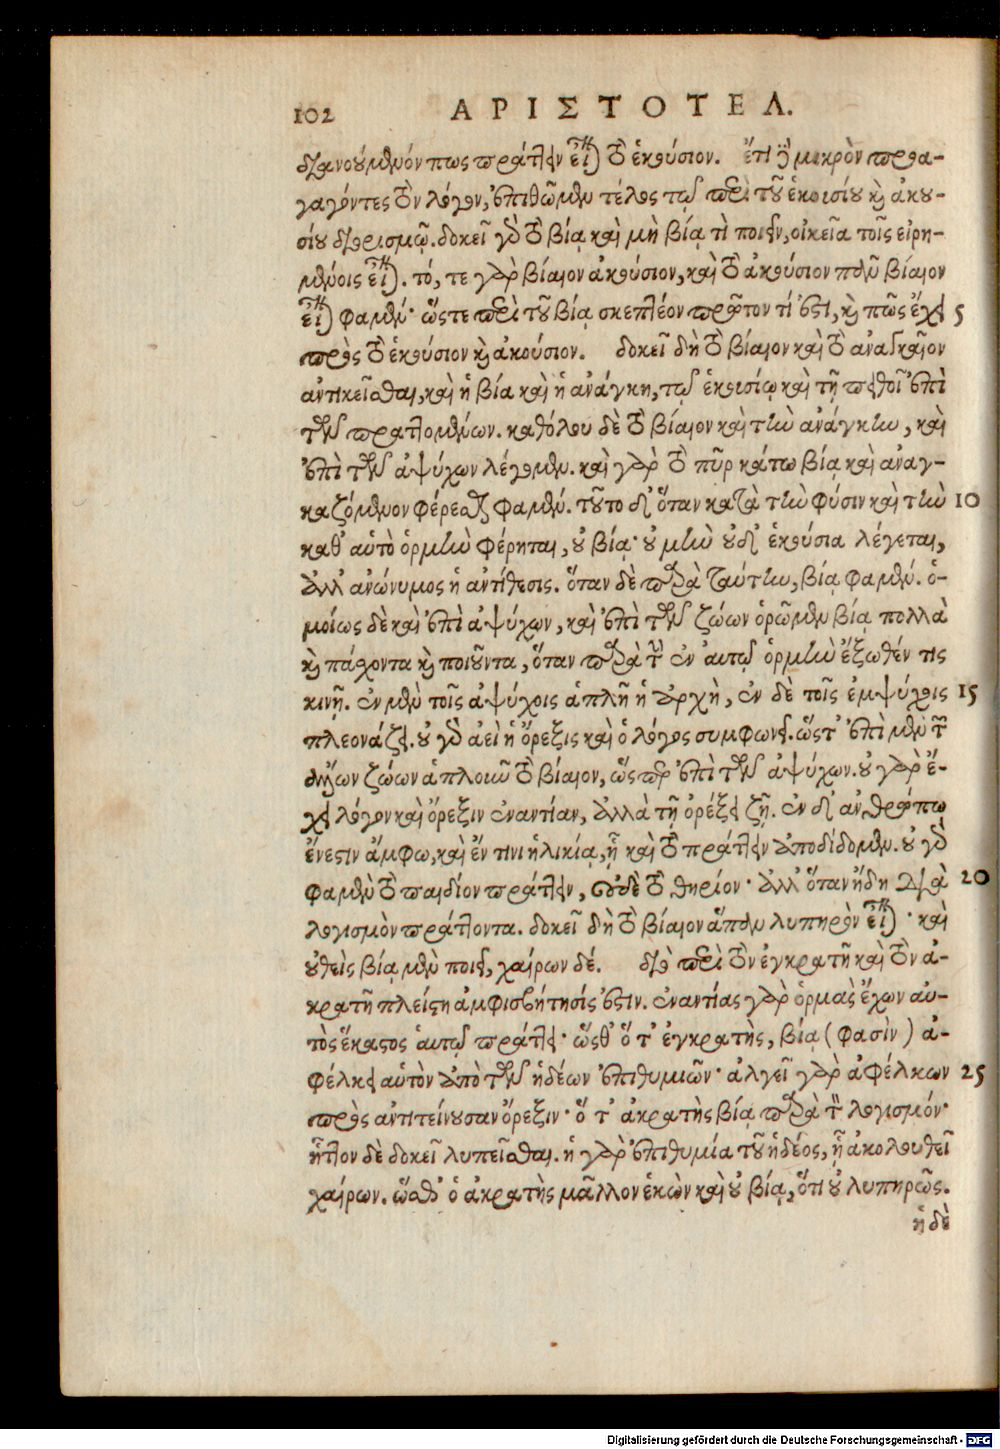 102 ΑΡΙΣΤΟΤΕΛ.
διανούμενόν πως πράττειν εἶναι τὸ ἑκούσιον. ἔτι δὲ μικρὸν προα-
γαγόντες τὸν λόγον, ἐπιθῶμεν τέλος τῷ περὶ τοῦ ἑκουσίου καὶ ἀκου-
σίου διορισμῷ. δοκεῖ γὰρ τὸ βίᾳ καὶ μὴ βίᾳ τὶ ποιεῖν, οἰκεῖα τοῖς εἰρη-
μένοις εἶναι. τό, τε γὰρ βίαιον ἀκούσιον, καὶ τὸ ἀκούσιον πᾶν βίαιον
εἶναι φαμέν· ὥστε περὶ τοῦ βίᾳ σκεπτέον πρῶτον τί ἐστι, καὶ πῶς ἔχει 5
πρὸς τὸ ἑκούσιον καὶ ἀκούσιον. δοκεῖ δὴ τὸ βίαιον καὶ τὸ ἀναγκαῖον
ἀντικεῖσθαι, καὶ ἡ βία καὶ ἡ ἀνάγκη, τῷ ἑκουσίῳ καὶ τῇ πειθοῖ ἐπὶ
τῶν πραττομένων. καθόλου δὲ τὸ βίαιον καὶ τὴν ἀνάγκην, καὶ
ἐπὶ τῶν ἀψύχων λέγομεν. καὶ γὰρ τὸ πῦρ κάτω βίᾳ καὶ ἀναγ-
καζόμενον φέρεσθαι φαμέν. τοῦτο δ' ὅταν κατὰ τὴν φύσιν καὶ τὴν 10
καθ' αὑτὸ ὁρμὴν φέρηται, οὐ βίᾳ· οὐ μὴν οὐδ' ἑκούσια λέγεται,
ἀλλ' ἀνώνυμος ἡ ἀντίθεσις. ὅταν δὲ παρὰ ταύτην, βίᾳ φαμέν. ὁ-
μοίως δὲ καὶ ἐπὶ ἀψύχων, καὶ ἐπὶ τῶν ζώων ὁρῶμεν βίᾳ πολλὰ
καὶ πάσχοντα καὶ ποιοῦντα, ὅταν παρὰ τὴν ἐν αὐτῷ ὁρμὴν ἔξωθέν τις
κινῇ. ἐν μὲν τοῖς ἀψύχοις ἁπλῆ ἡ ἀρχὴ, ἐν δὲ τοῖς ἐμψύχοις 15
πλεονάζει. οὐ γὰρ ἀεὶ ἡ ὄρεξις καὶ ὁ λόγος συμφωνεῖ. ὥστ' ἐπὶ μὲν τῶν
ἄλλων ζώων ἁπλοῦν τὸ βίαιον, ὥσπερ ἐπὶ τῶν ἀψύχων. οὐ γὰρ ἔ-
χει λόγον καὶ ὄρεξιν ἐναντίαν, ἀλλὰ τῇ ὀρέξει ζῇ. ἐν δ' ἀνθρώπῳ
ἔνεστιν ἄμφω, καὶ ἔν τινι ἡλικίᾳ, ᾗ καὶ τὸ πράττειν ἀποδίδομεν. οὐ γὰρ
φαμὲν τὸ παιδίον πράττειν, οὐδὲ τὸ θηρίον· ἀλλ' ὅταν ἤδη διὰ 20
λογισμὸν πράττοντα. δοκεῖ δὴ τὸ βίαιον ἅπαν λυπηρὸν εἶναι· καὶ
οὐθεὶς βίᾳ μὲν ποιεῖ, χαίρων δέ. διὸ περὶ τὸν ἐγκρατῆ καὶ τὸν ἀ-
κρατῆ πλείστη ἀμφισβήτησίς ἐστιν. ἐναντίας γὰρ ὁρμὰς ἔχων αὐ-
τὸς ἕκαστος ἑαυτῷ πράττει· ὥσθ' ὅ τ' ἐγκρατὴς, βίᾳ (φασὶν) ἀ-
φέλκει αὑτὸν ἀπὸ τῶν ἡδέων ἐπιθυμιῶν· ἀλγεῖ γὰρ ἀφέλκων 25
πρὸς ἀντιτείνουσαν ὄρεξιν· ὅ τ' ἀκρατὴς βίᾳ παρὰ τὸν λογισμόν·
ἧττον δὲ δοκεῖ λυπεῖσθαι. ἡ γὰρ ἐπιθυμία τοῦ ἡδέος, ᾗ ἀκολουθεῖ
χαίρων. ὥσθ' ὁ ἀκρατὴς μᾶλλον ἑκὼν καὶ οὐ βίᾳ, ὅτι οὐ λυπηρῶς.
ἡ δὲ
Digitalisierung gefördert durch die Deutsche Forschungsgemeinschaft - DFG